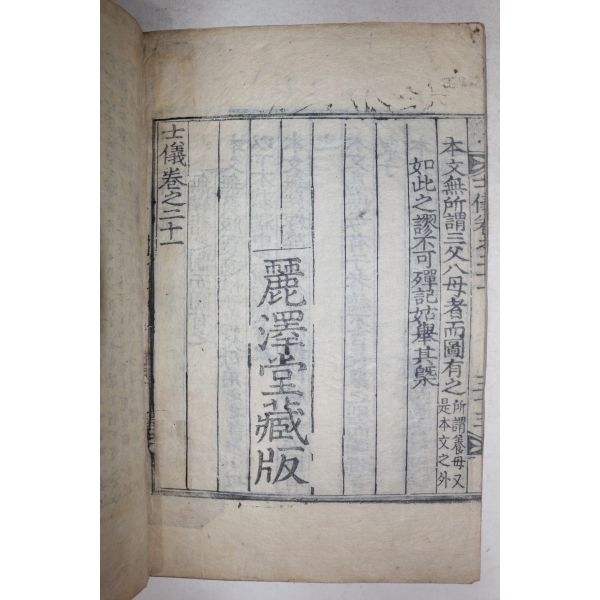 士儀卷之二十一
本文無所謂三父八母者而圖有之所謂養母又是本文之外
如此之謬不可殫記姑舉其槩
麗澤堂藏版
士儀卷之二十一